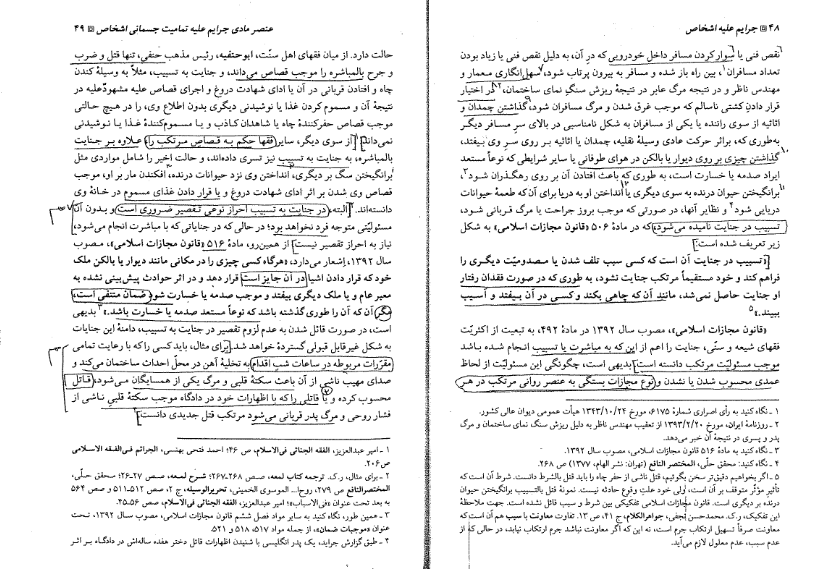 ۴۸ جرایم علیه اشخاص
نقص فنی یا سوار کردن مسافر داخل خودرویی که در آن، به دلیل نقص فنی یا زیاد بودن
تعداد مسافران، بین راه باز شده و مسافر به بیرون پرتاب شود، سهل‌انگاری معمار و
مهندس ناظر و در نتیجه مرگ عابر در نتیجهٔ ریزش سنگ نمای ساختمان،۲ در اختیار
قرار دادن کشتی ناسالم که موجب غرق شدن و مرگ مسافران شود، گذاشتن چمدان و
اثاثیه از سوی راننده یا یکی از مسافران به شکل نامناسبی در بالای سر مسافر دیگر
به‌طوری که، براثر حرکت عادی وسیلهٔ نقلیه، چمدان یا اثاثیه بر روی سر وی بیفتد،
گذاشتن چیزی بر روی دیوار یا بالکن در هوای طوفانی یا سایر شرایطی که نوعاً مستعد
ایراد صدمه یا خسارت است، به طوری که باعث افتادن آن بر روی رهگذران شود،۳
برانگیختن حیوان درنده به سوی دیگری یا انداختن او به دریا برای آن که طعمهٔ حیوانات
دریایی شود۴ و نظایر آنها، در صورتی که موجب بروز جراحت یا مرگ قربانی شود،
تسبیب در جنایت نامیده می‌شود، که در مادهٔ ۵۰۶ «قانون مجازات اسلامی» به شکل
زیر تعریف شده است:
«تسبیب در جنایت آن است که کسی سبب تلف شدن یا مصدومیت دیگری را
فراهم کند و خود مستقیماً مرتکب جنایت نشود، به طوری که در صورت فقدان رفتار
او جنایت حاصل نمی‌شد، مانند آن که چاهی بکند و کسی در آن بیفتد و آسیب
ببیند.»۵
«قانون مجازات اسلامی»، مصوب سال ۱۳۹۲ در مادهٔ ۴۹۲، به تبعیت از اکثریت
فقهای شیعه و سنّی، جنایت را اعم از این که به مباشرت یا تسبیب انجام شده باشد
موجب مسئولیت مرتکب دانسته است. بدیهی است، چگونگی این مسئولیت از لحاظ
عمدی محسوب شدن یا نشدن و نوع مجازات بستگی به عنصر روانی مرتکب در هر
۱ ـ نگاه کنید به رأی اصراری شمارهٔ ۶۱۷۵، مورخ ۱۳۴۳/۱۰/۲۴ هیأت عمومی دیوان عالی کشور.
۲ ـ روزنامهٔ ایران، مورخ ۱۳۹۳/۲/۲۰ از تعقیب مهندس ناظر به دلیل ریزش سنگ نمای ساختمان و مرگ
پدر و پسری در نتیجهٔ آن خبر می‌دهد.
۳ ـ نگاه کنید به مادهٔ ۵۱۶ قانون مجازات اسلامی، مصوب سال ۱۳۹۲.
۴ ـ نگاه کنید: محقق حلّی، المختصر النافع (تهران: نشر الهام، ۱۳۷۷) ص ۲۶۸.
۵ ـ اگر بخواهیم دقیق‌تر سخن بگوئیم، قتل ناشی از حفر چاه را باید قتل بالشرط دانست. شرط آن است که
تأثیر مؤثّر متوقف بر آن است، ولی خود علتِ وقوع حادثه نیست. نمونهٔ قتل بالتسبیب برانگیختن حیوان
درنده بر دیگری است. قانون مجازات اسلامی تفکیکی بین شرط و سبب قائل نشده است. جهت ملاحظهٔ
این تفکیک، ر.ک. محمدحسن نجفی، جواهرالکلام، ج ۴۱، ص ۱۳. تفاوت معاونت با سبب هم آن است که
معاونت صرفاً تسهیل ارتکاب جرم است، نه این که اگر معاونت نباشد جرم ارتکاب نیابد، در حالی که از
عدم سبب، عدم معلول لازم می‌آید.
عنصر مادی جرایم علیه تمامیت جسمانی اشخاص ۴۹
حالت دارد. از میان فقهای اهل سنّت، ابوحنیفه، رئیس مذهب حنفی، تنها قتل و ضرب
و جرح بالمباشره را موجب قصاص می‌داند، و جنایت به تسبیب، مثلاً به وسیلهٔ کندن
چاه و افتادن قربانی در آن یا ادای شهادت دروغ و اجرای قصاص علیه مشهودٌعلیه در
نتیجهٔ آن و مسموم کردن غذا یا نوشیدنی دیگری بدون اطلاع وی، را در هیچ حالتی
موجب قصاص حفرکنندهٔ چاه یا شاهدان کاذب و یا مسموم‌کنندهٔ غذا یا نوشیدنی
نمی‌داند.۱ از سوی دیگر، سایر فقها حکم به قصاص مرتکب را، علاوه بر جنایت
بالمباشره، به جنایت به تسبیب نیز تسری داده‌اند، و حالت اخیر را شامل مواردی مثل
برانگیختن سگ بر دیگری، انداختن وی نزد حیوانات درنده، افکندن مار بر او، موجب
قصاص وی شدن بر اثر ادای شهادت دروغ و یا قرار دادن غذای مسموم در خانهٔ وی
دانسته‌اند.۲ البته، در جنایت به تسبیب احراز نوعی تقصیر ضروری است و بدون آن
مسئولیتی متوجه فرد نخواهد بود؛ در حالی که در جنایاتی که با مباشرت انجام می‌شود،
نیاز به احراز تقصیر نیست. از همین‌رو، مادهٔ ۵۱۶ «قانون مجازات اسلامی»، مصوب
سال ۱۳۹۲، اِشعار می‌دارد، «هرگاه کسی چیزی را در مکانی مانند دیوار یا بالکن ملک
خود که قرار دادن اشیا در آن جایز است قرار دهد و در اثر حوادث پیش‌بینی نشده به
معبر عام و یا ملک دیگری بیفتد و موجب صدمه یا خسارت شود ضمان منتفی است،
مگر آن که آن را طوری گذاشته باشد که نوعاً مستعد صدمه یا خسارت باشد.»۳ بدیهی
است، در صورت قائل شدن به عدم لزوم تقصیر در جنایت به تسبیب، دامنهٔ این جنایات
به شکل غیرقابل قبولی گسترده خواهد شد. برای مثال، باید کسی را که با رعایت تمامی
مقرّرات مربوطه در ساعات شب اقدام به تخلیهٔ آهن در محل احداث ساختمان می‌کند و
صدای مهیب ناشی از آن باعث سکتهٔ قلبی و مرگ یکی از همسایگان می‌شود، قاتل
محسوب کرده و یا قاتلی را که با اظهارات خود در دادگاه موجب سکتهٔ قلبی ناشی از
فشار روحی و مرگ پدر قربانی می‌شود مرتکب قتل جدیدی دانست.۴
۱ ـ امیر عبدالعزیز، الفقه الجنائی فی‌الاسلام، ص ۴۶؛ احمد فتحی بهنسی، الجرائم فی‌الفقه الاسلامی
ص ۲۰۶.
۲ ـ برای مثال، ر.ک. ترجمه کتاب لمعه، صص ۲۶۷-۲۶۸؛ شرح لمعه، صص ۲۷-۲۶؛ محقق حلّی،
المختصرالنافع ص ۲۷۹، روح‌ا... الموسوی الخمینی، تحریرالوسیله، ج ۲، صص ۵۱۲-۵۱۱ و ص ۵۶۴
به بعد تحت عنوان «فی‌الاسباب»؛ امیر عبدالعزیز، الفقه الجنائی فی‌الاسلام، صص ۵۶-۴۵.
۳ ـ همین طور، نگاه کنید به سایر مواد فصل ششم قانون مجازات اسلامی، مصوب سال ۱۳۹۲، تحت
عنوان «موجبات ضمان»، از جمله مواد ۵۱۷، ۵۱۸ و ۵۲۱.
۴ ـ طبق گزارش جراید، یک پدر انگلیسی با شنیدن اظهارات قاتل دختر هفده ساله‌اش در دادگاه بر اثر